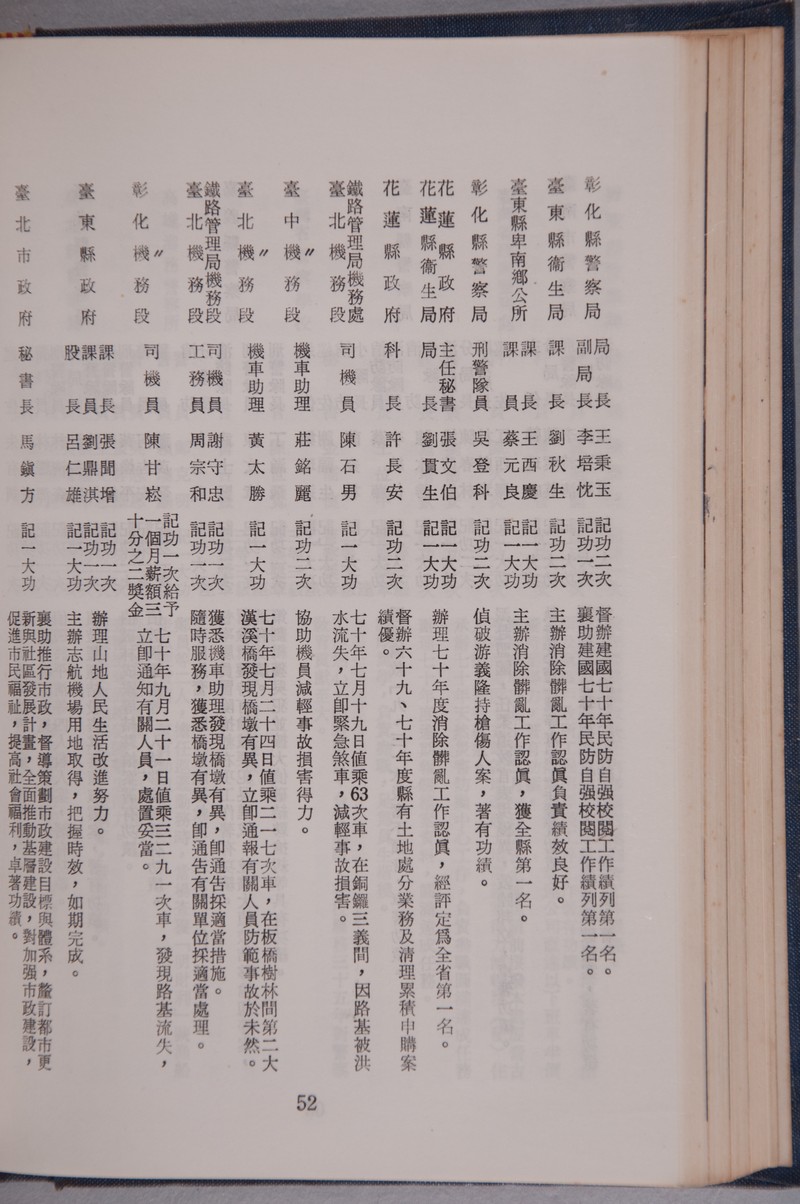 彰化縣警察局 局長 王秉玉 記功二次 督辦建國七十年民防自强校閱工作績列第一名。
副局長 李培忱 記功一次 襄助建國七十年民防自强校閱工作績列第一名。
臺東縣衞生局 課長 劉秋生 記功二次 主辦消除髒亂工作認眞負責績效良好。
臺東縣卑南鄉公所 課長 王西慶 記一大功 主辦消除髒亂工作認眞,獲全縣第一名。
課員 蔡元良 記一大功
彰化縣警察局 刑警隊員 吳登科 記功二次 偵破游義隆持槍傷人案,著有功績。
花蓮縣政府 主任秘書 張文伯 記一大功 辦理七十年度消除髒亂工作認眞,經評定爲全省第一名。
花蓮縣衞生局 局長 劉貫生 記一大功
花蓮縣政府 科長 許長安 記功二次 督辦六十九、七十年度縣有土地處分業務及清理累積申購案
績優。
鐵路管理局機務處
臺北機務段 司機員 陳石男 記一大功 七十年七月十九日値乘63次車,在銅鑼三義間,因路基被洪
水流失,立卽緊急煞車,減輕事故損害。
〃
臺中機務段 機車助理 莊銘麗 記功二次 協助機員減輕事故損害得力。
〃
臺北機務段 機車助理 黃太勝 記一大功 七十年七月二十四日値乘二一七次車,在板橋樹林間第二大
漢溪橋發現橋墩有異,立卽通報有關人員防範事故於未然。
鐵路管理局機務段 司機員 謝守忠 記功一次 獲悉機車助理發現橋墩有異,卽通告採適當措施。
臺北機務段 工務員 周宗和 記功一次 隨時服務,獲悉橋墩有異,卽通告有關單位採適當處理。
〃
彰化機務段 司機員 陳甘崧 記功一次給予
一個月薪額三
十分之二獎金
七十年九月二十一日値乘三二九一次車,發現路基流失,
立卽通知有關人員,處置妥當。
臺東縣政府 課長 張聞增 記功一次 辦理山地人民生活改進努力。
課員 劉鼎淇 記功一次
股長 呂仁雄 記一大功 主辦志航機場用地取得,把握時效,如期完成。
臺北市政府 秘書長 馬鎭方 記一大功 襄助推行市政,督導策劃市政建設目標與體系,釐訂都市更
新與社區發展計畫,全面推動基層建設,對加强市政建設,
促進市民福祉,提高社會福利,卓著功績。
52